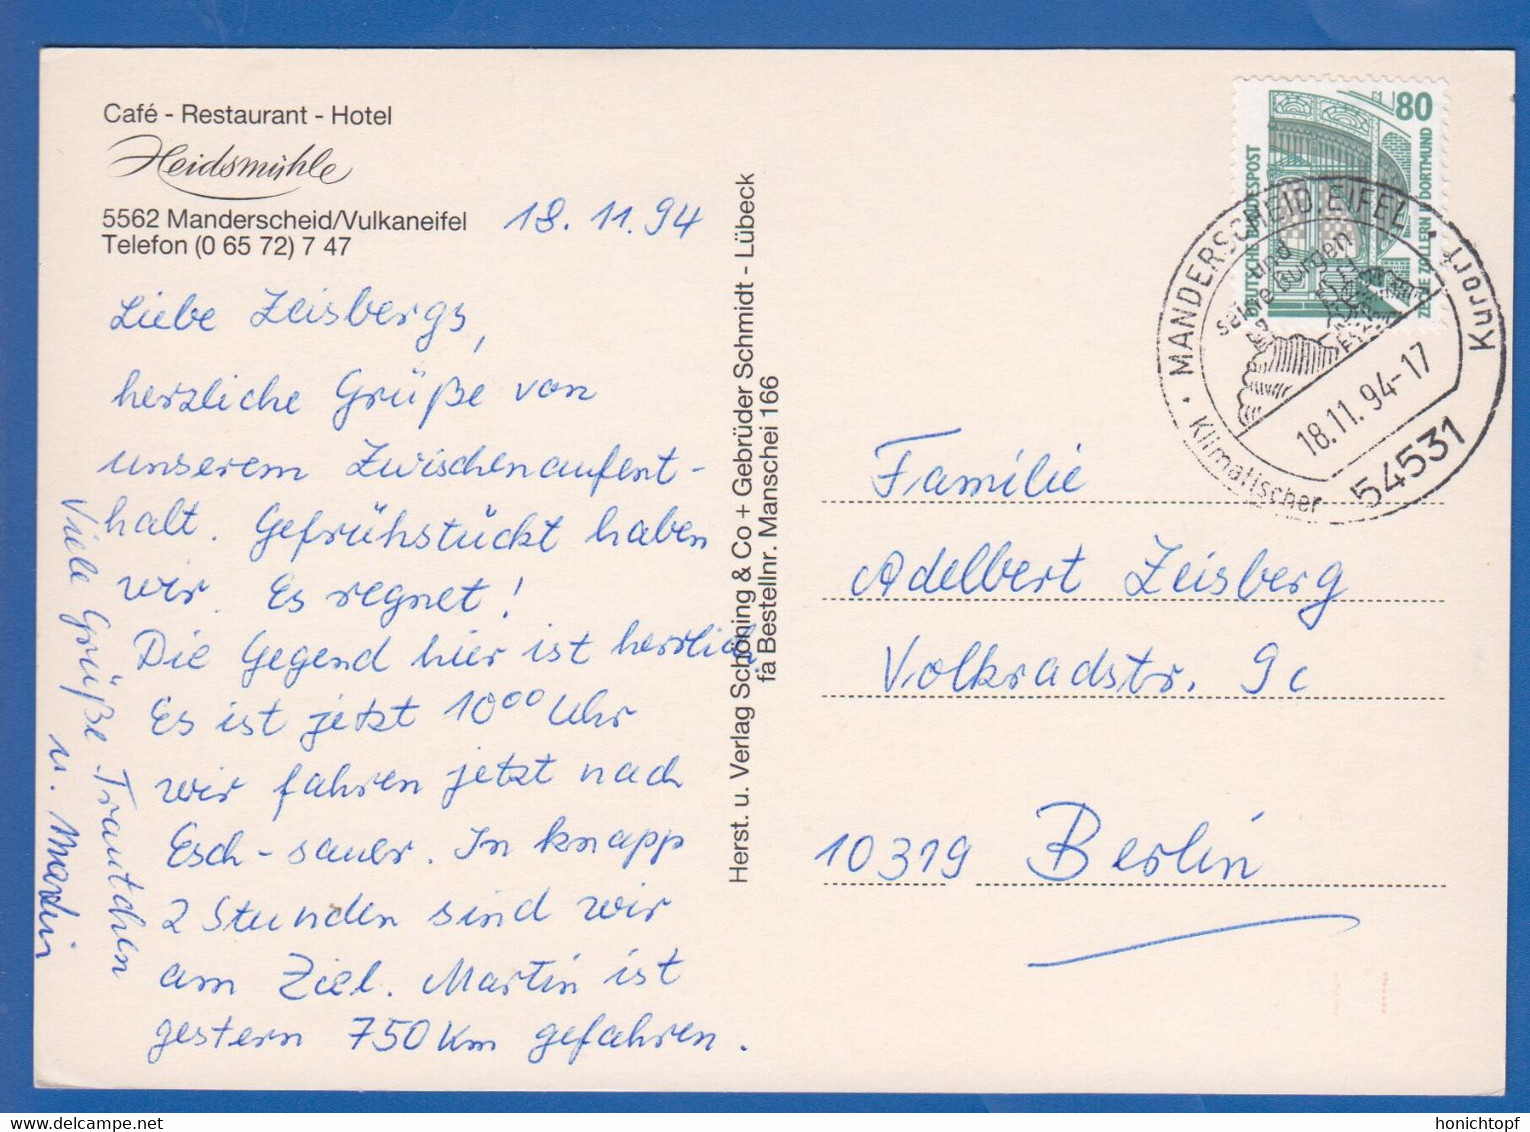 Café - Restaurant - Hotel
Heidsmühle
5562 Manderscheid/Vulkaneifel
Telefon (0 65 72) 7 47
18.11.94
Liebe Zeisbergs,
herzliche Grüße von
unserem Zwischenaufent-
halt. Gefrühstückt haben
wir. Es regnet!
Die Gegend hier ist herrlich.
Es ist jetzt 10⁰⁰ Uhr
wir fahren jetzt nach
Esch-sauer. In knapp
2 Stunden sind wir
am Ziel. Martin ist
gestern 750 km gefahren.
Viele Grüße Trautchen
u. Martin
Herst. u. Verlag Schöning & Co + Gebrüder Schmidt - Lübeck
fa Bestellnr. Manschei 166
80
DEUTSCHE BUNDESPOST
ZECHE ZOLLERN II DORTMUND
MANDERSCHEID EIFEL
Klimatischer
Kurort
und
seine Burgen
18.11.94-17
54531
Familie
Adelbert Zeisberg
Volkradstr. 9c
10319 Berlin
honichtopf